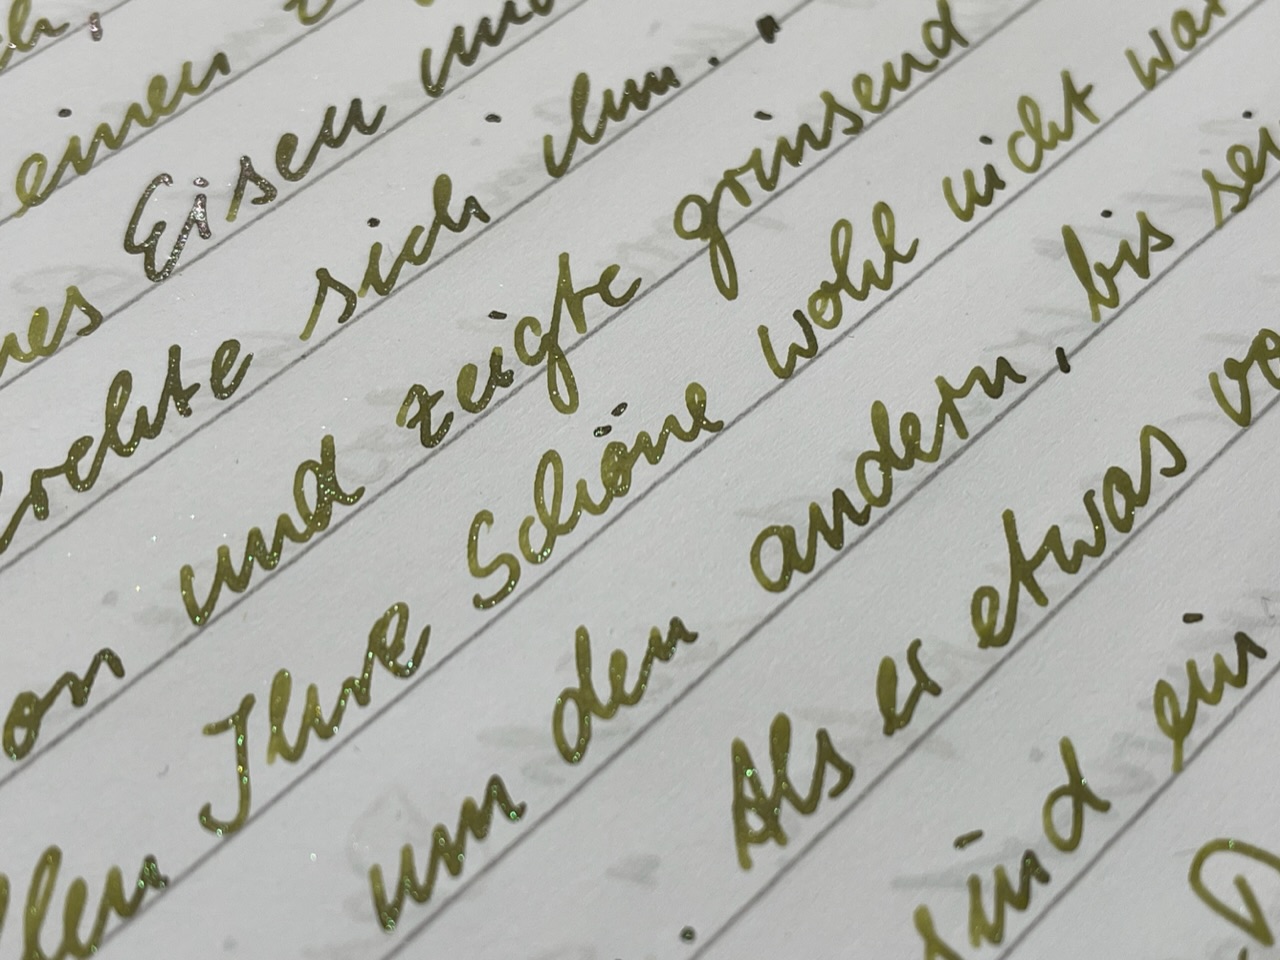 einen
Eisen und
sich um."
und zeigte grinsend
Ihre Schöne wohl nicht war
um den andern, bis sei
Als er etwas vo
sind ein
D